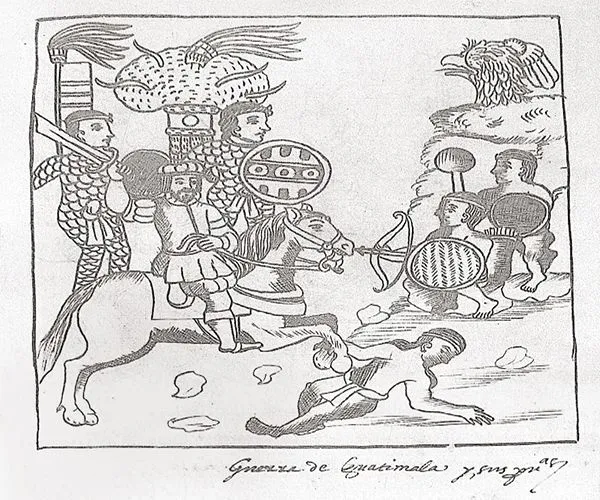 Guerra de Guatimala y, sus